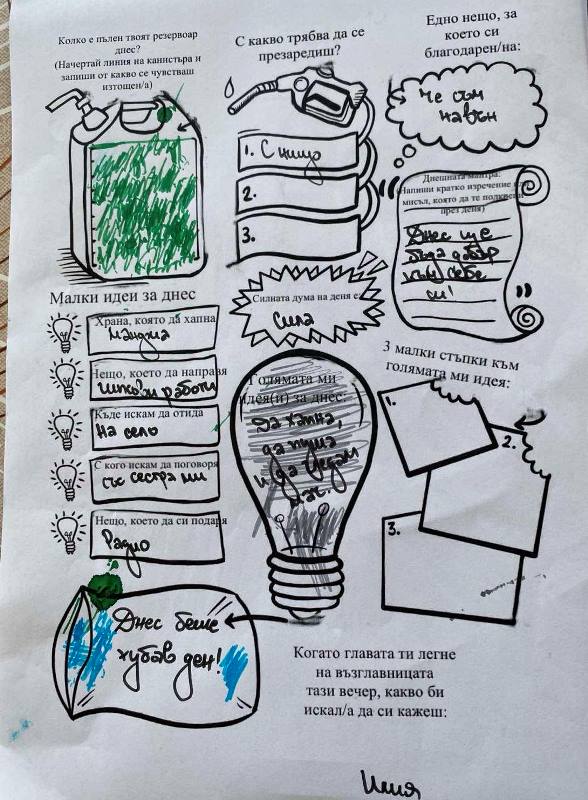 Колко е пълен твоят резервоар
днес?
(Начертай линия на канистъра и
запиши от какво се чувстваш
изтощен/а)
С какво трябва да се
презаредиш?
1. С нищо
2.
3.
Едно нещо, за
което си
благодарен/на:
Че съм
навън
Днешната мантра:
(Напиши кратко изречение или
мисъл, която да те подкрепя
през деня)
Днес ще
бъда добър
към себе
си!
Малки идеи за днес
Храна, която да хапна
манджа
Нещо, което да направя
работи
Къде искам да отида
На село
С кого искам да поговоря
със сестра ми
Нещо, което да си подаря
Радио
Силната дума на деня е
Сила
Голямата ми
идея(и) за днес:
Да хапна,
да пуша
и да
3 малки стъпки към
голямата ми идея:
1.
2.
3.
Днес беше
хубав ден!
Когато главата ти легне
на възглавницата
тази вечер, какво би
искал/а да си кажеш: